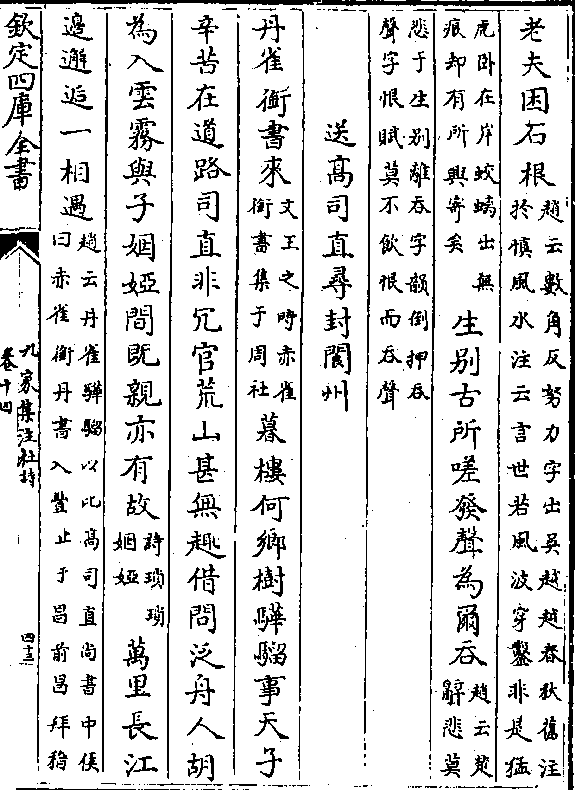 老夫困石根趙云數角反努力字出吳越越春秋舊注於慎風水注云言世若風波穿鑿非是猛
虎卧在岸蛟螭出無痕却有所興寄矣生别古所嗟發聲為爾吞趙云楚辭悲莫
悲于生别離吞字韻倒押吞聲字恨賦莫不飲恨而吞聲
送高司直尋封閬州
丹雀銜書來文王之時赤雀銜書集于周社暮樓何鄉樹驊騮事天子
辛苦在道路司直非冗官荒山甚無趣借問泛舟人胡
為入雲霧與子姻婭間既親亦有故詩瑣瑣姻婭萬里長江
邊邂逅一相遇趙云丹雀驊騮以比高司直尚書中候曰赤雀銜丹書入豐止于昌前昌拜稽
欽定四庫全書
九家集注杜詩
卷十四
四十三